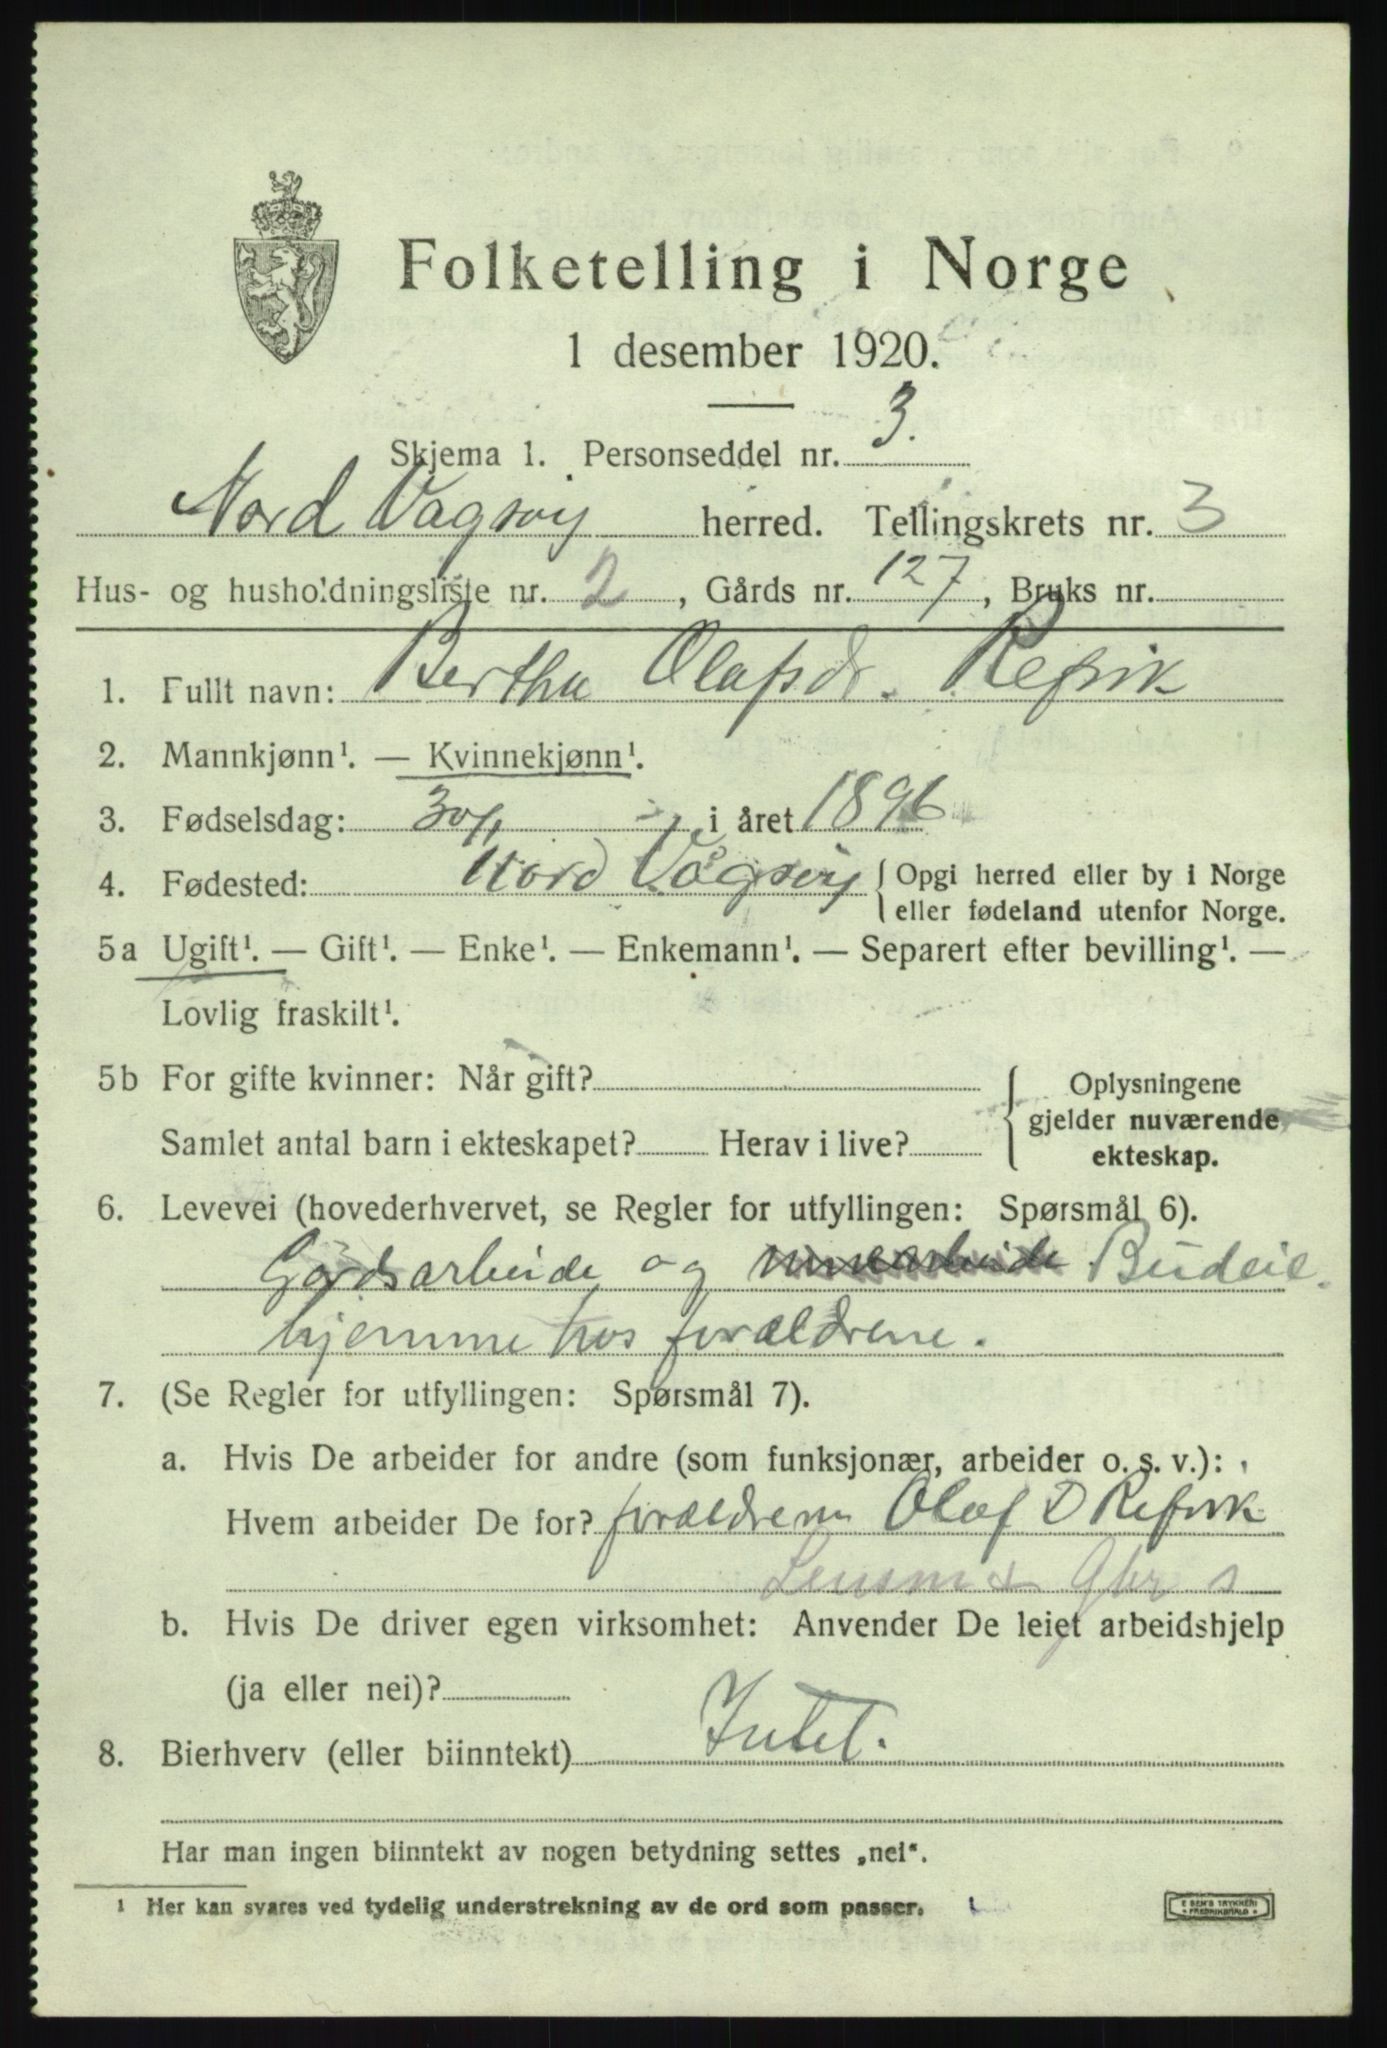 Folketelling i Norge
1 desember 1920.
Skjema 1. Personseddel nr. 3.
Nord Vågsøy herred. Tellingskrets nr. 3
Hus- og husholdningsliste nr. 2, Gårds nr. 127, Bruks nr.
1. Fullt navn: Bertha Olafsdr. Refvik
2. Mannkjønn¹. — Kvinnekjønn¹.
3. Fødselsdag: 30/1 i året 1896
4. Fødested: Nord Vågsøy { Opgi herred eller by i Norge
eller fødeland utenfor Norge.
5a Ugift¹. — Gift¹. — Enke¹. — Enkemann¹. — Separert efter bevilling¹. —
Lovlig fraskilt¹.
5b For gifte kvinner: Når gift? { Oplysningene
gjelder nuværende
Samlet antal barn i ekteskapet? Herav i live? ekteskap.
6. Levevei (hovederhvervet, se Regler for utfyllingen: Spørsmål 6).
Gårdsarbeide og Budeie
hjemme hos forældrene.
7. (Se Regler for utfyllingen: Spørsmål 7).
a. Hvis De arbeider for andre (som funksjonær, arbeider o. s. v.):
Hvem arbeider De for? forældrene Olaf D Refvik
Lensm & Gbr s
b. Hvis De driver egen virksomhet: Anvender De leiet arbeidshjelp
(ja eller nei)?
8. Bierhverv (eller biinntekt) Intet.
Har man ingen biinntekt av nogen betydning settes „nei“.
¹ Her kan svares ved tydelig understrekning av de ord som passer.